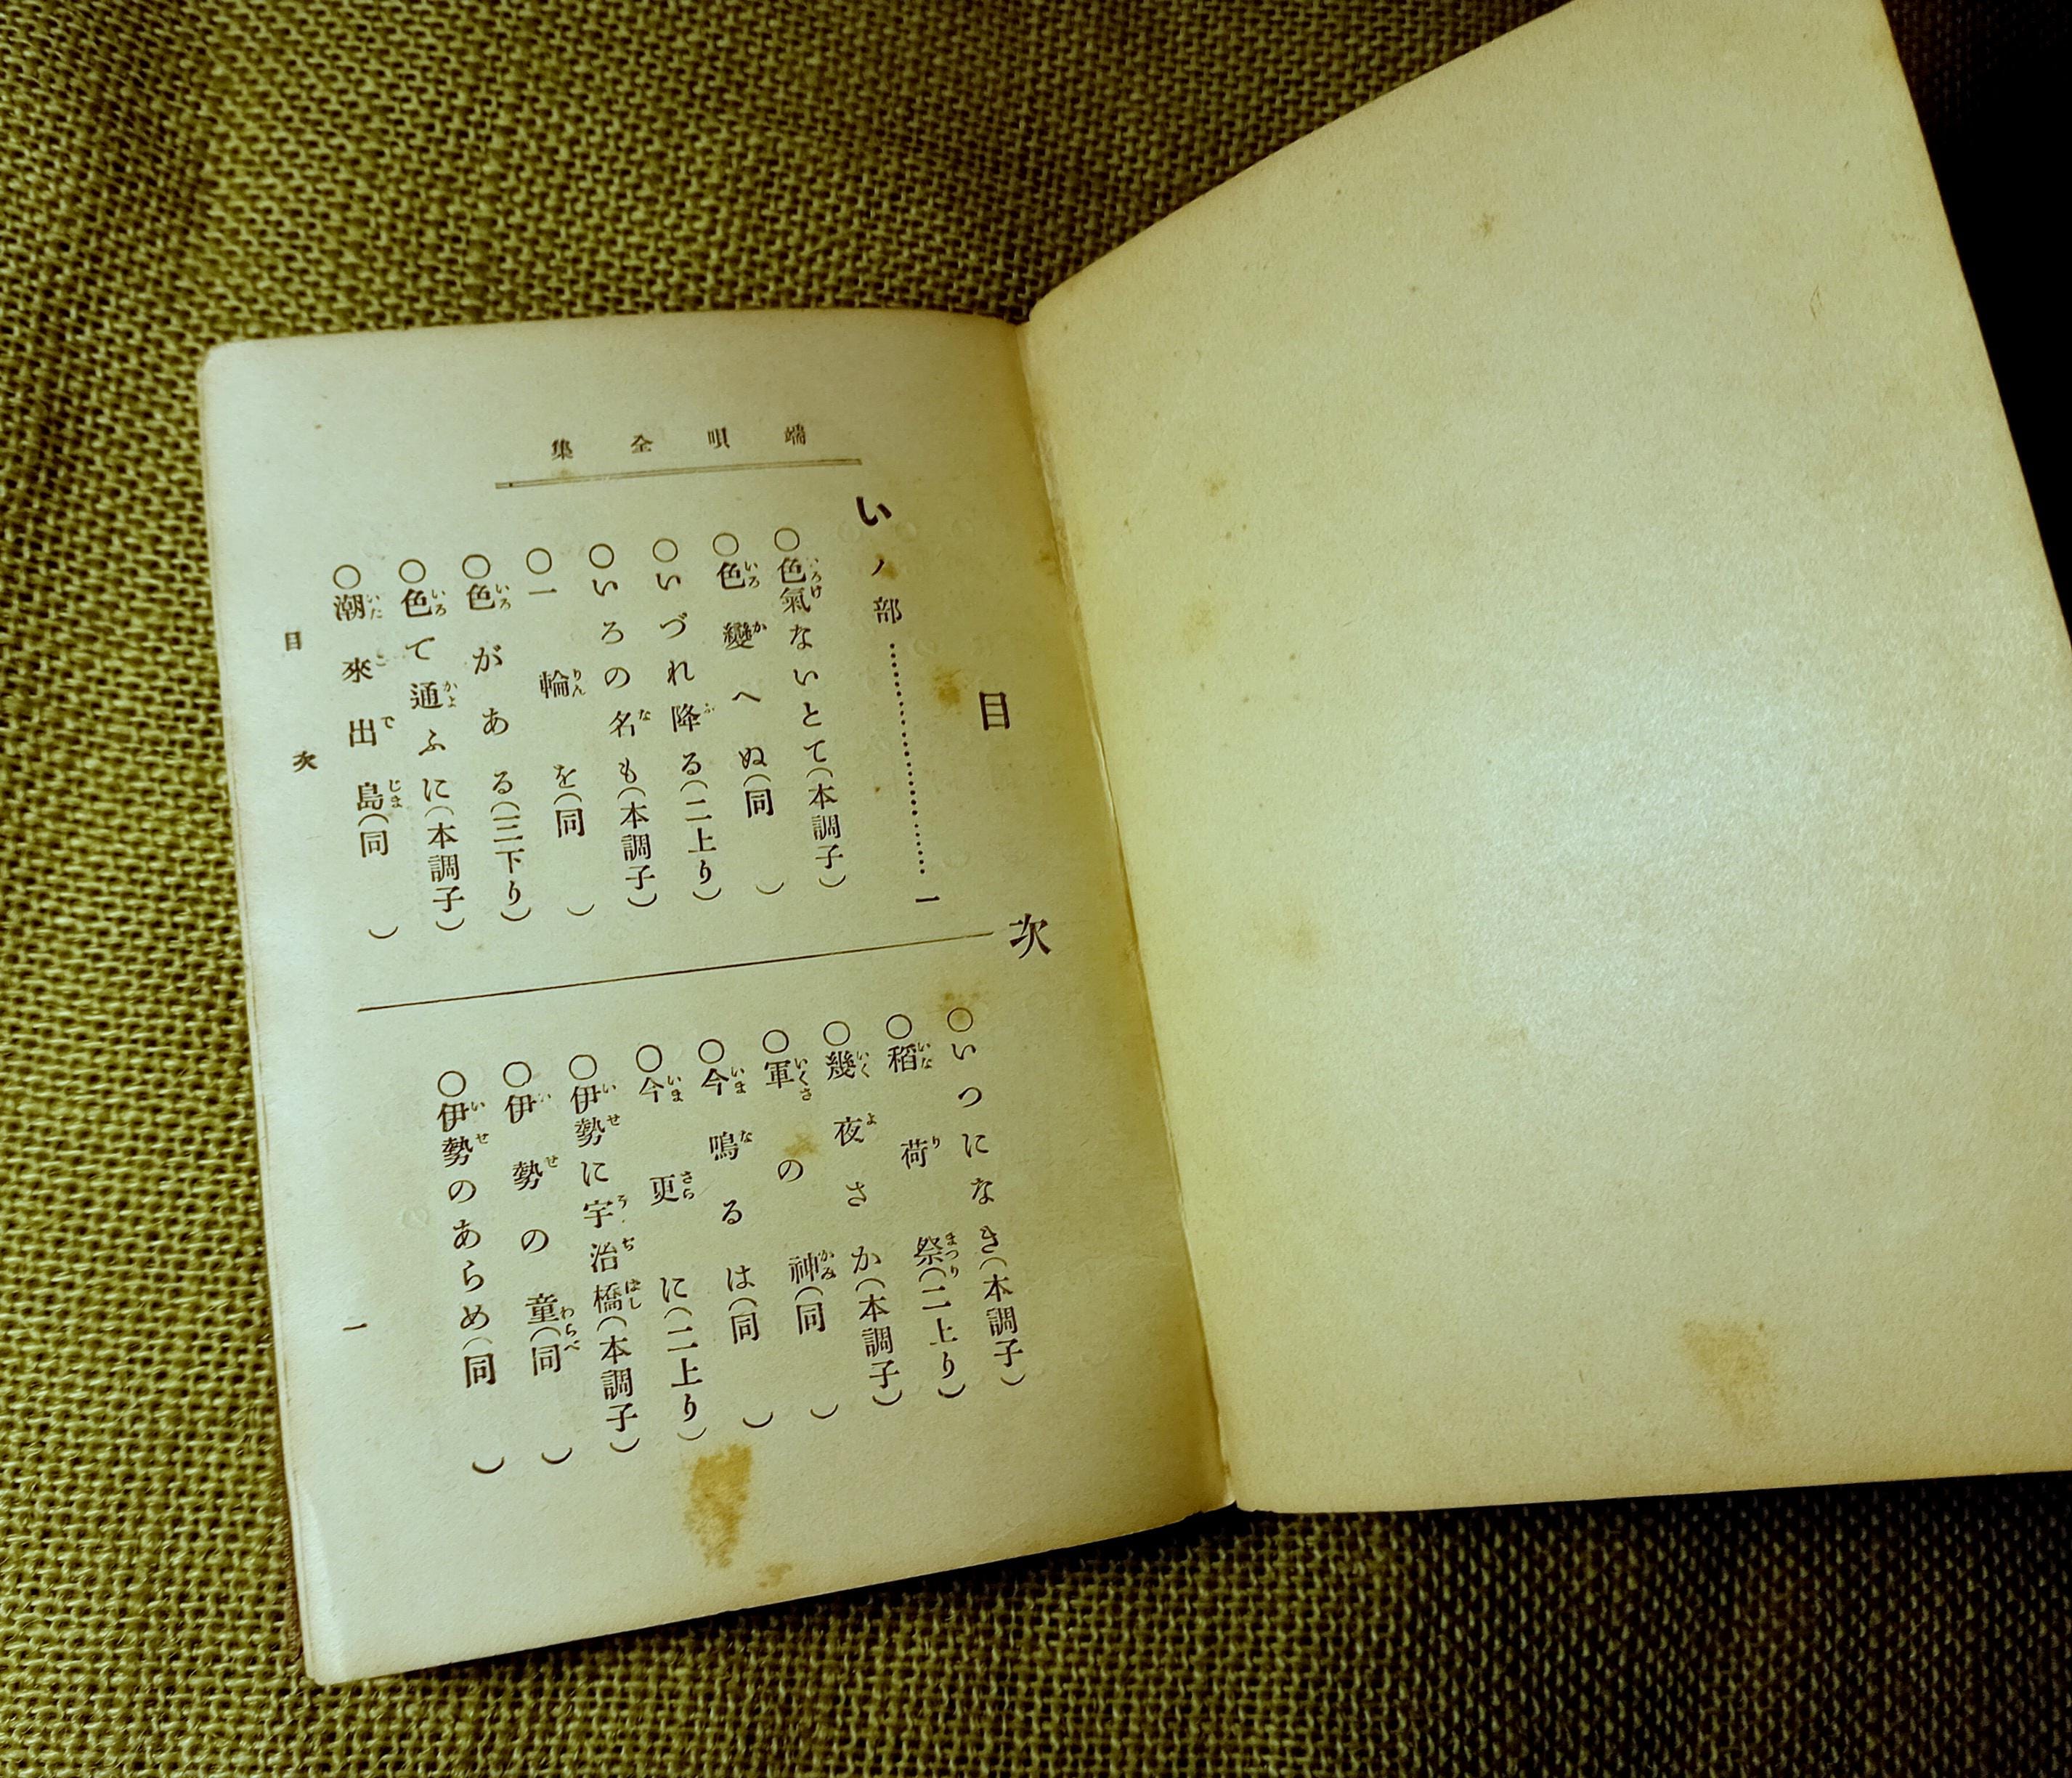 端唄全集
目次
いノ部…………………一
○色氣ないとて(本調子)
○色變へぬ(同)
○いづれ降る(二上り)
○いろの名も(本調子)
○一輪を(同)
○色がある(三下り)
○色て通ふに(本調子)
○潮來出島(同)
○いつになき(本調子)
○稻荷祭(二上り)
○幾夜さか(本調子)
○軍の神(同)
○今鳴るは(同)
○今更に(二上り)
○伊勢に宇治橋(本調子)
○伊勢の童(同)
○伊勢のあらめ(同)
目次
一